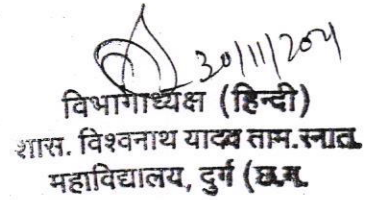 30/11/2021
विभागाध्यक्ष (हिन्दी)
शास. विश्वनाथ यादव ताम. स्नात.
महाविद्यालय, दुर्ग (छ.ग.